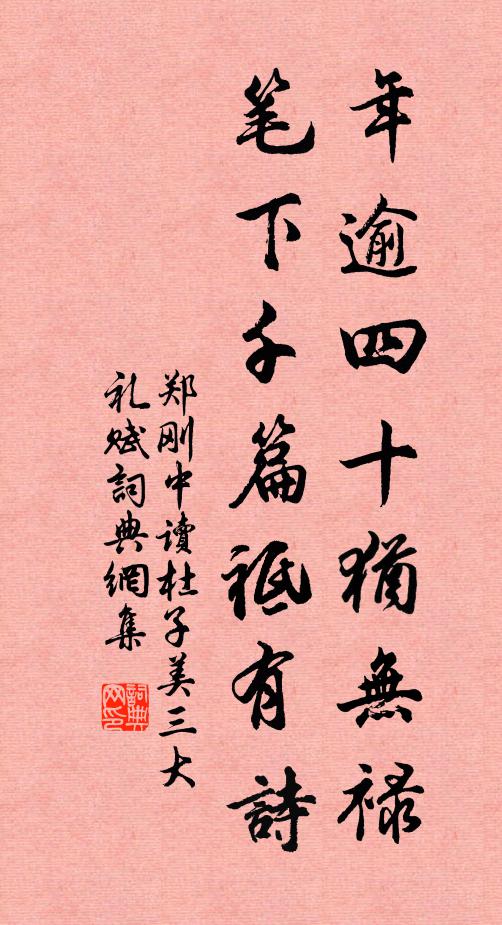 年逾四十猶無禄
笔下千篇祗有詩
郑刚中讀杜子美三大
礼赋詞典網集
詞典网印